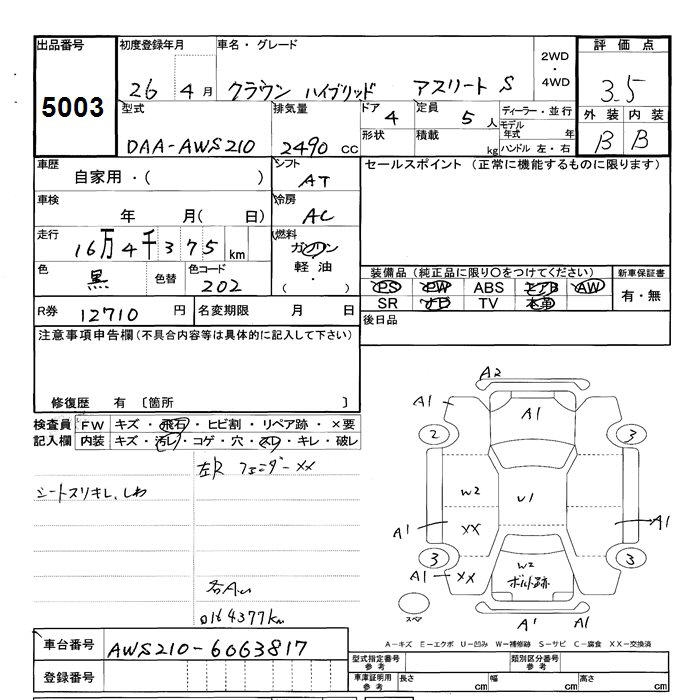 出品番号 初度登録年月 車名・グレード 2WD・4WD 評価点
5003 26 4月 クラウン ハイブリッド アスリートS 3.5
型式 排気量 ドア 4 定員 5人 ディーラー・並行 外装 内装
DAA-AWS210 2490 CC 形状 積載 kg モデル年式 年 B B
ハンドル 左・右
車歴 自家用・( ) シフト AT セールスポイント (正常に機能するものに限ります)
車検 年 月( 日) 冷房 AC
走行 16万4千375km 燃料 ガソリン
色 黒 色替 色コード 202 軽油・( )
装備品 (純正品に限り○をつけてください) 新車保証書
PS PW ABS エアB AW 有・無
SR ナビ TV 本革
R券 12710円 名変期限 月 日 後日品
注意事項申告欄(不具合内容等は具体的に記入して下さい)
修復歴 有 〔箇所 〕
検査員 FW キズ・飛石・ヒビ割・リペア跡・×要
記入欄 内装 キズ・汚レ・コゲ・穴・スレ・キレ・破レ
左R フェンダーXX
シートスリキレ、しわ
0164377km
A2
A1 A1
2 3
W2 U1
A1 XX A1
3 3
A1 XX W2 ボルト跡
スペア A1 A1
A-キズ E-エクボ U-凹み W-補修跡 S-サビ C-腐食 XX-交換済
車台番号 AWS210-6063817
登録番号
型式指定番号 参考 類別区分番号 参考
車庫証明用 参考 長さ cm 幅 cm 高さ cm